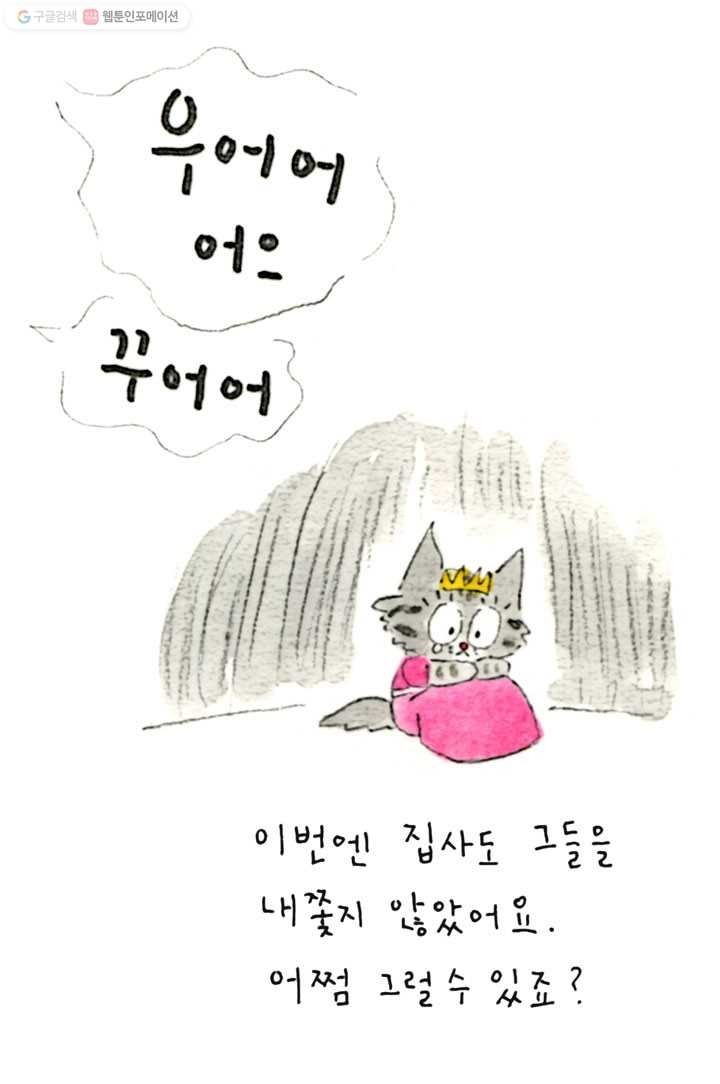 구글검색 웹툰인포메이션
우어어
어으
꾸어어
이번엔 집사도 그들을
내쫓지 않았어요.
어쩜 그럴 수 있죠?